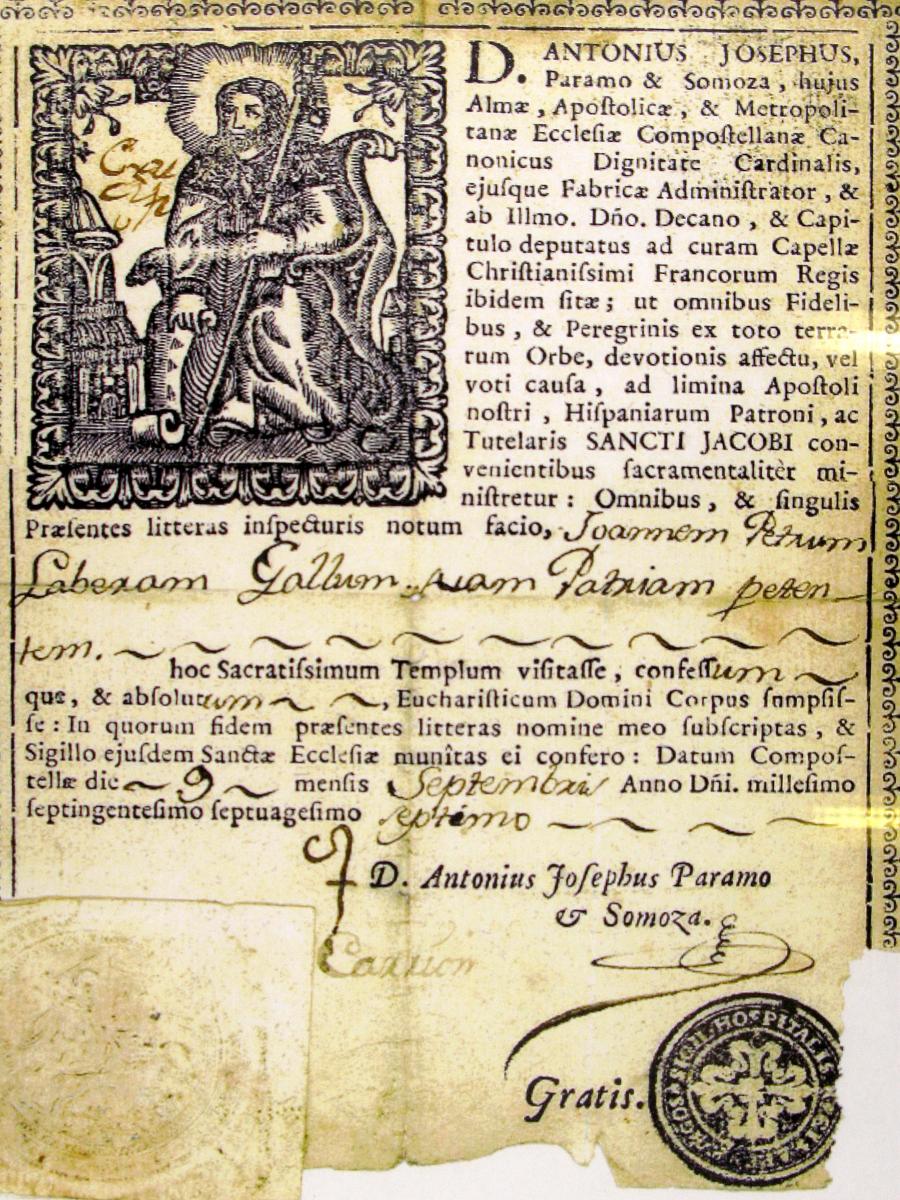 D. ANTONIUS JOSEPHUS,
Paramo & Somoza, hujus
Almæ, Apoſtolicæ, & Metropoli-
tanæ Eccleſiæ Compoſtellanæ Ca-
nonicus Dignitate Cardinalis,
ejuſque Fabricæ Adminiſtrator, &
ab Illmo. Dño. Decano, & Capi-
tulo deputatus ad curam Capellæ
Chriſtianiſsimi Francorum Regis
ibidem ſitæ; ut omnibus Fideli-
bus, & Peregrinis ex toto terra-
rum Orbe, devotionis affectu, vel
voti cauſa, ad limina Apoſtoli
noſtri, Hiſpaniarum Patroni, ac
Tutelaris SANCTI JACOBI con-
venientibus ſacramentalitèr mi-
niſtretur: Omnibus, & ſingulis
Præſentes litteras inſpecturis notum facio, Joannem Petrum
Laberam Gallum suam Patriam peten
tem.
hoc Sacratiſsimum Templum viſitaſſe, confeſſum
que, & abſolutum, Euchariſticum Domini Corpus ſumpſiſ-
ſe: In quorum fidem præſentes litteras nomine meo ſubſcriptas, &
Sigillo ejuſdem Sanctæ Eccleſiæ munîtas ei confero: Datum Compoſ-
tellæ die 9 menſis Septembris Anno Dñi. milleſimo
ſeptingenteſimo ſeptuageſimo septimo
D. Antonius Joſephus Paramo
& Somoza.
Gratis.
HOSPITALIS